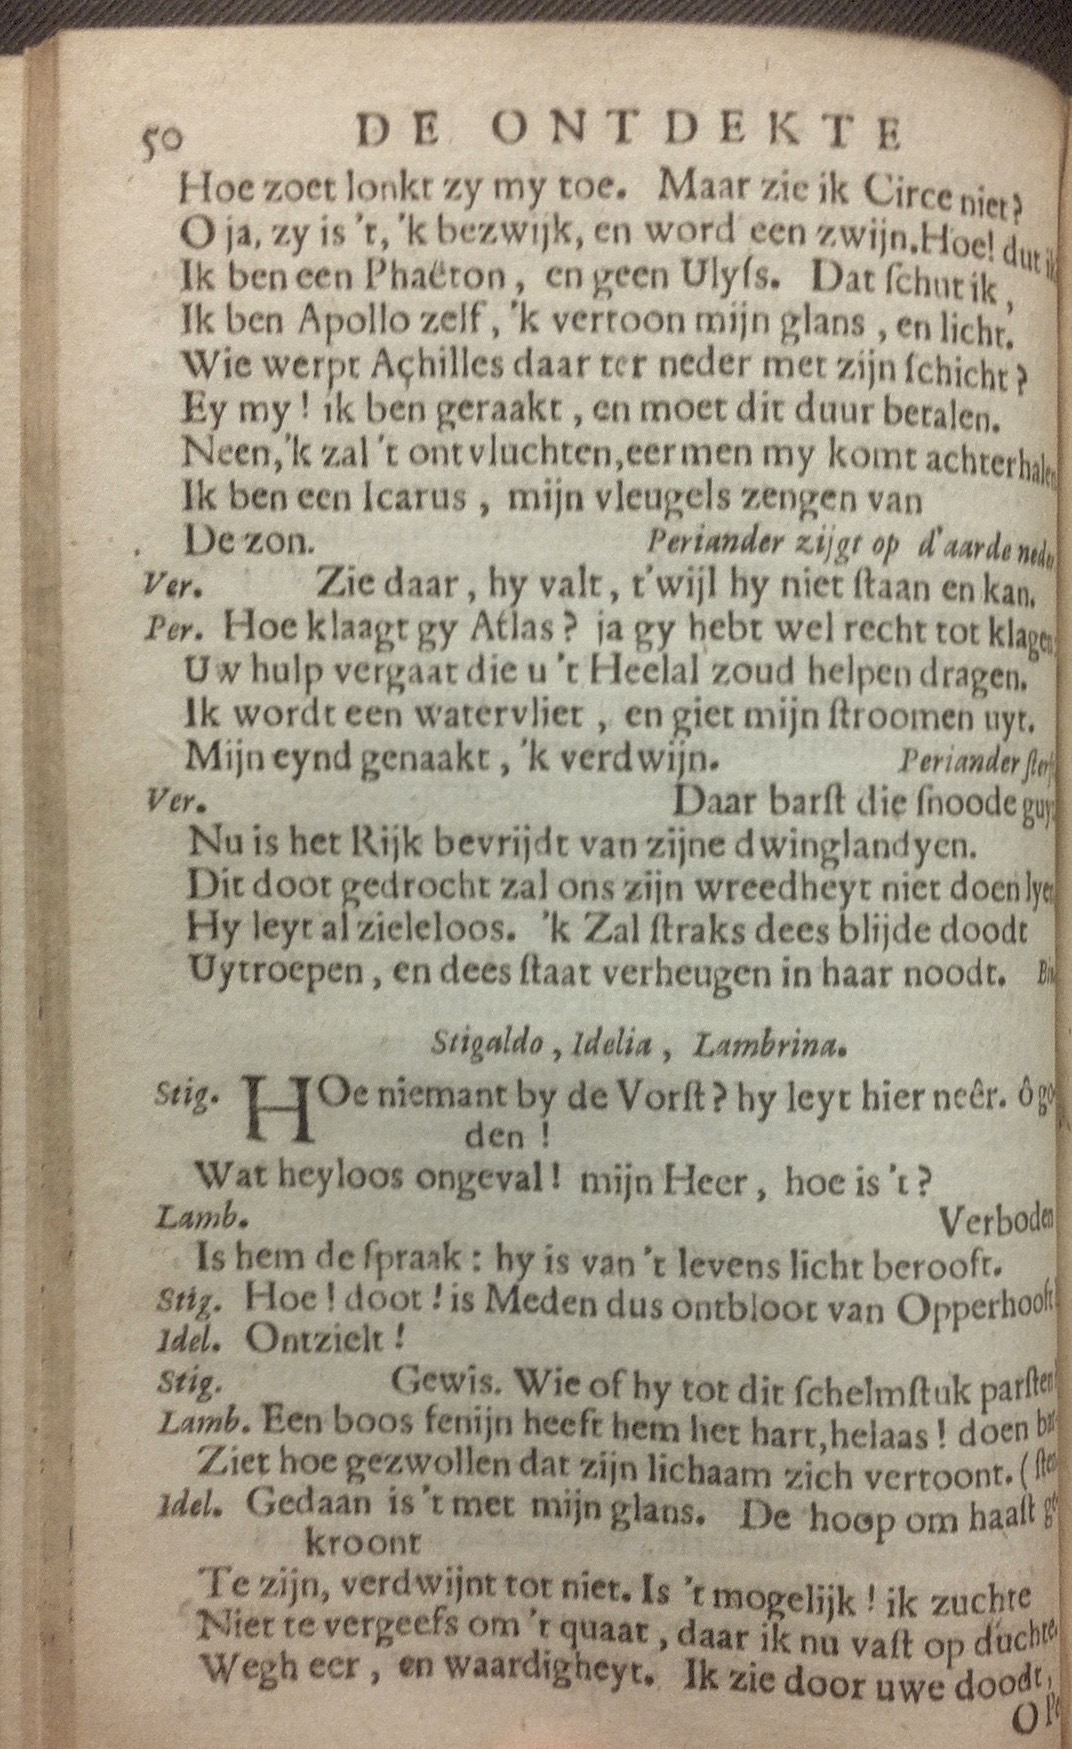 50 DE ONTDEKTE
Hoe zoet lonkt zy my toe. Maar zie ik Circe niet?
O ja, zy is 't, 'k bezwijk, en word een zwijn. Hoe! dut ik
Ik ben een Phaëton, en geen Ulyſs. Dat ſchut ik,
Ik ben Apollo zelf, 'k vertoon mijn glans, en licht.
Wie werpt Açhilles daar ter neder met zijn ſchicht?
Ey my! ik ben geraakt, en moet dit duur betalen.
Neen, 'k zal 't ontvluchten, eer men my komt achterhalen
Ik ben een Icarus, mijn vleugels zengen van
De zon. Periander zijgt op d'aarde neder
Ver. Zie daar, hy valt, t'wijl hy niet ſtaan en kan.
Per. Hoe klaagt gy Atlas? ja gy hebt wel recht tot klagen;
Uw hulp vergaat die u 't Heelal zoud helpen dragen.
Ik wordt een watervliet, en giet mijn ſtroomen uyt.
Mijn eynd genaakt, 'k verdwijn. Periander ſterft
Ver. Daar barſt die ſnoode guy
Nu is het Rijk bevrijdt van zijne dwinglandyen.
Dit doot gedrocht zal ons zijn wreedheyt niet doen lyen
Hy leyt al zieleloos. 'k Zal ſtraks dees blijde doodt
Uytroepen, en dees ſtaat verheugen in haar noodt. Bin
Stigaldo, Idelia, Lambrina.
Stig. HOe niemant by de Vorſt? hy leyt hier neêr. ô go
den!
Wat heyloos ongeval! mijn Heer, hoe is 't?
Lamb. Verboden
Is hem de ſpraak: hy is van 't levens licht berooft.
Stig. Hoe! doot! is Meden dus ontbloot van Opperhooft
Idel. Ontzielt!
Stig. Gewis. Wie of hy tot dit ſchelmſtuk parſten
Lamb. Een boos fenijn heeft hem het hart, helaas! doen bar
Ziet hoe gezwollen dat zijn lichaam zich vertoont. (ſten
Idel. Gedaan is 't met mijn glans. De hoop om haaſt ge
kroont
Te zijn, verdwijnt tot niet. Is 't mogelijk! ik zuchte
Niet te vergeefs om 't quaat, daar ik nu vaſt op duchte.
Wegh eer, en waardigheyt. Ik zie door uwe doodt,
O Pe